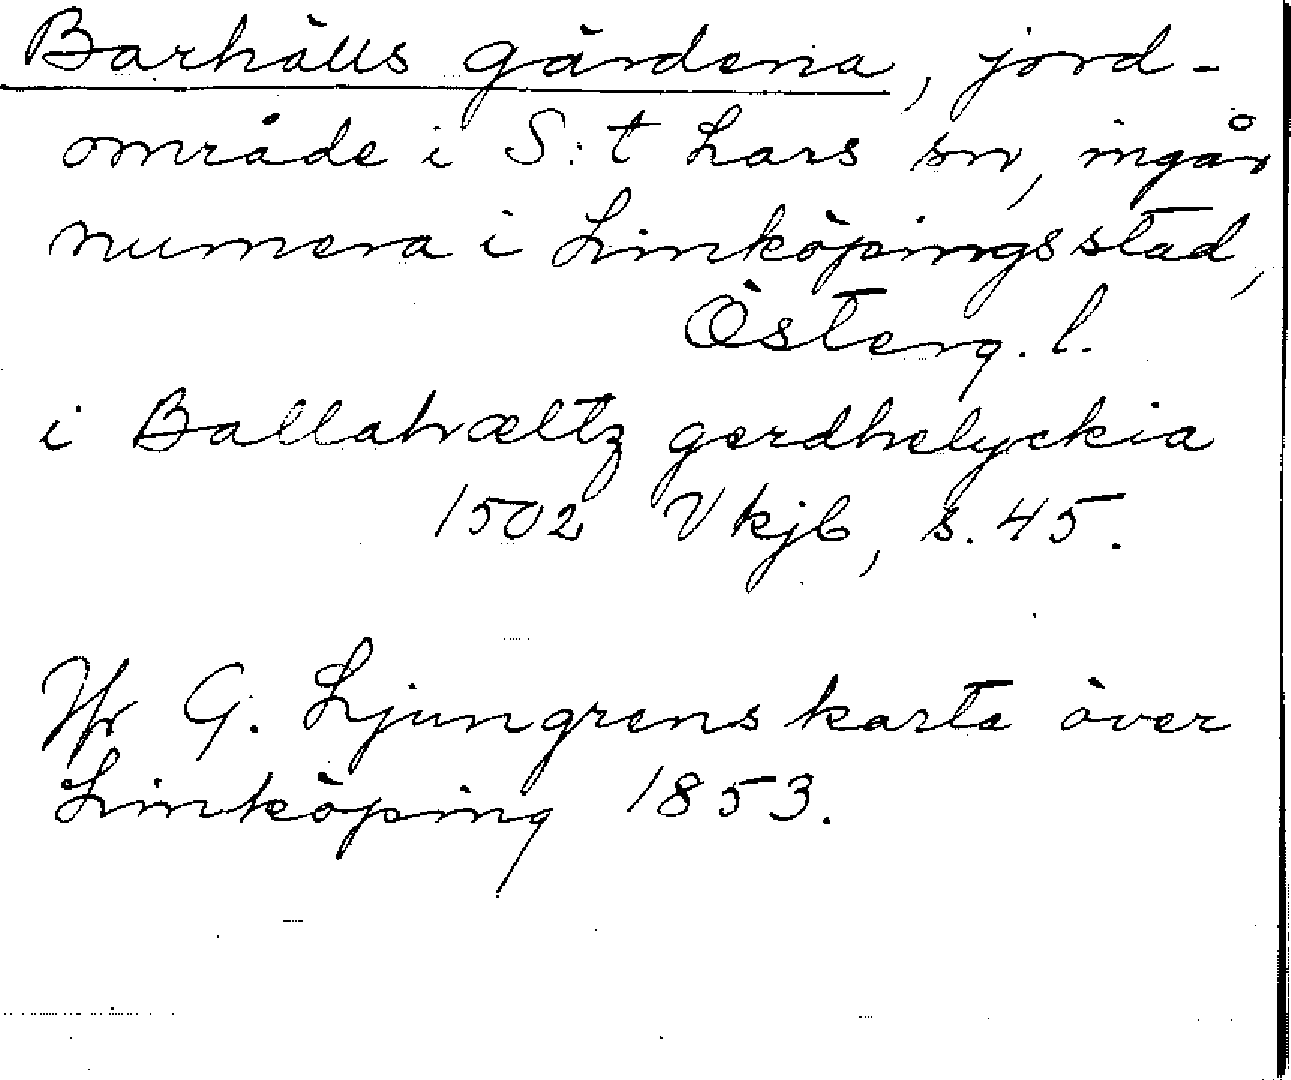 Barhälls gärdena, jord-
område i S:t Lars sn, ingår
numera i Linköpings stad,
Österg. l.
i Ballahvæltz gerdhelyckia
1502 Vkjb, s. 45.
Jfr G. Ljungrens karta över
Linköping 1853.